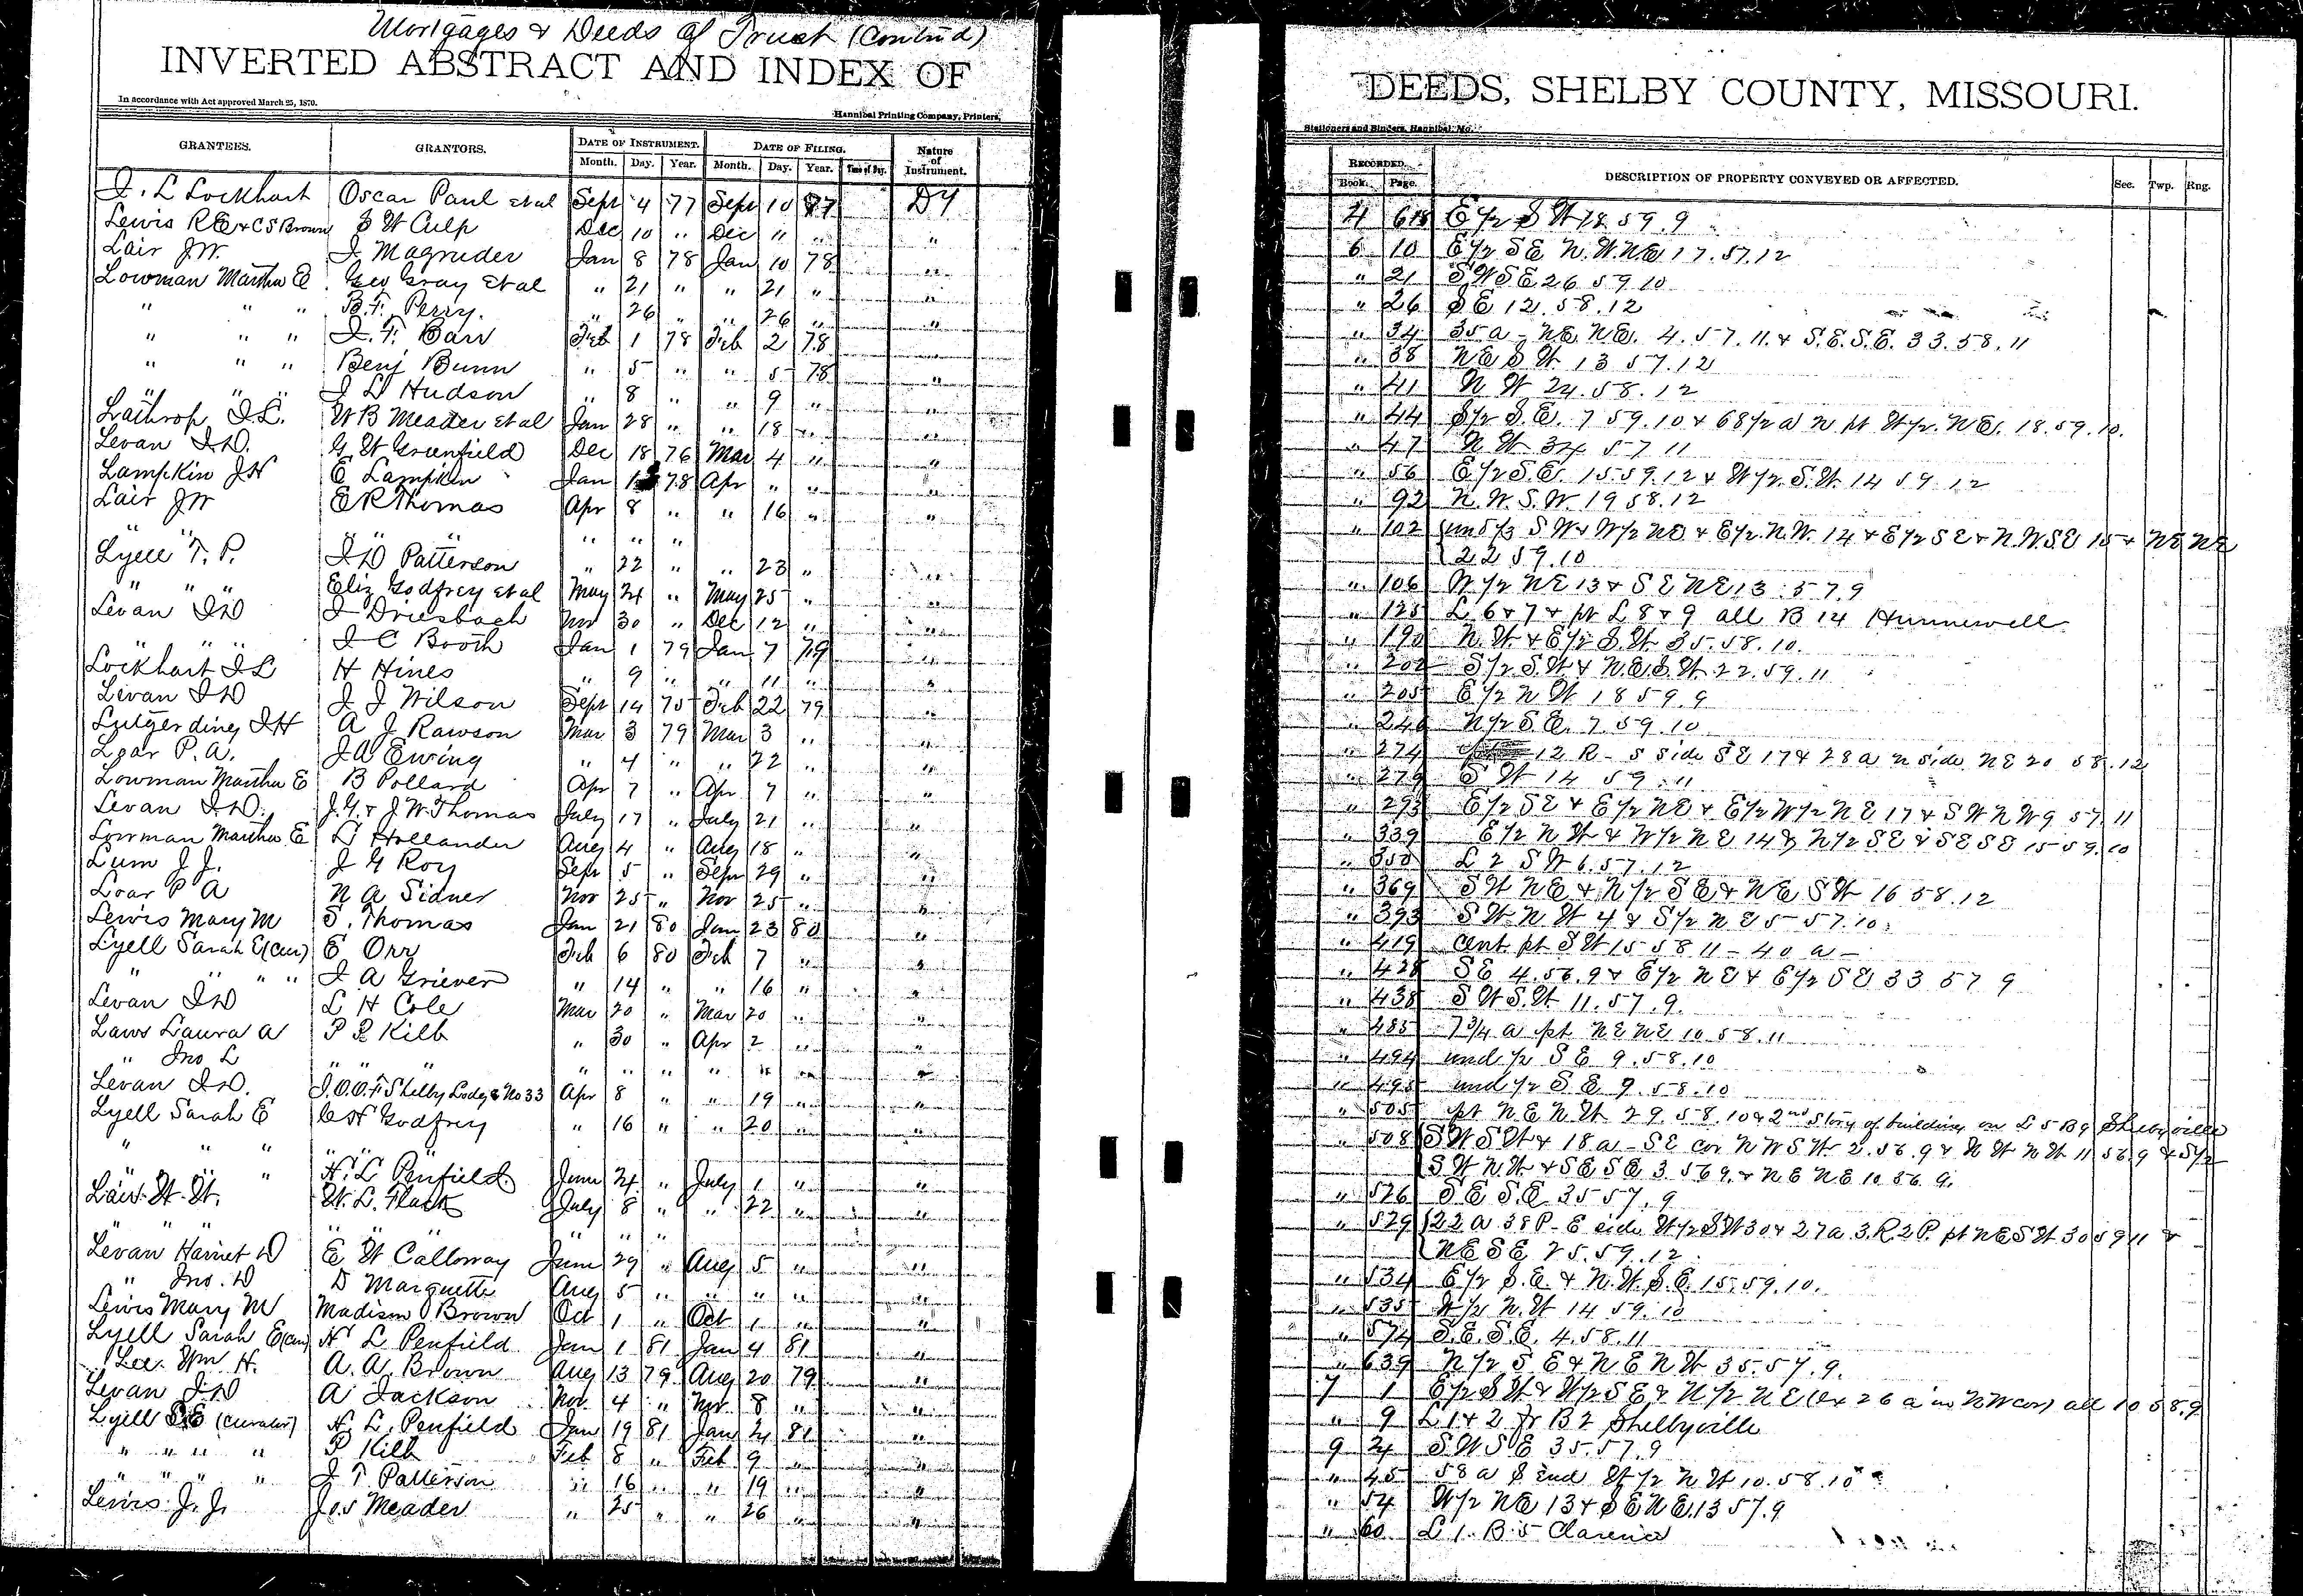 Mortgages & Deeds of Trust (Contind)
INVERTED ABSTRACT AND INDEX OF
In accordance with Act approved March 25, 1870.
Hannibal Printing Company, Printers,
GRANTEES. GRANTORS. DATE OF INSTRUMENT. DATE OF FILING. Nature of Instrument.
Month. Day. Year. Month. Day. Year. Time of Day.
I. L Lockhart Oscar Paul et al Sept 4 77 Sept 10 77 DT
Lewis RE & CS Brown S W Culp Dec 10 " Dec 11 " "
Lair JW. I. Magruder Jan 8 78 Jan 10 78 "
Lowman Martha E. Geo Gray et al " 21 " " 21 " "
" " " B.F. Perry. " 26 " " 26 " "
" " " I. F. Barr Feb 1 78 Feb 2 78 "
" " " Benj Bunn " 5 " " 5 78 "
" " " J L Hudson " 8 " " 9 " "
Lathrop I.L. W B Meader et al Jan 28 " " 18 " "
Levan I.D. G W Greenfield Dec 18 76 Mar 4 " "
Lampkin JW E Lampkin Jan 78 Apr " " "
Lair JW E R Thomas Apr 8 " " 16 " "
" " " " " " "
Lyell T. P. I D Patterson " 22 " " 23 " "
" " " Eliz Godfrey et al May 24 " May 25 " "
Levan ID J Driesbach Nov 30 " Dec 12 " "
" " " I C Booth Jan 1 79 Jan 7 79 "
Lockhart I L H Hines " 9 " " 11 " "
Levan I D J J Wilson Sept 14 75 Feb 22 79 "
Lutgerding I H A J Rawson Mar 3 79 Mar 3 " "
Loar P. A. J A Ewing " 4 " " 22 " "
Lowman Martha E B Pollard Apr 7 " Apr 7 " "
Levan I.D. J.Y. & J W. Thomas July 17 " July 21 " "
Lowman Martha E L Hollander Aug 4 " Aug 18 " "
Lum J J. J G Roy Sept 5 " Sept 29 " "
Loar P A N A Sidner Nov 25 " Nov 25 " "
Lewis Mary M S. Thomas Jan 21 80 Jan 23 80 "
Lyell Sarah E (Cur) E Orr Feb 6 80 Feb 7 " "
" " " " J. A Griever " 14 " " 16 " "
Levan I D L H Cole Mar 20 " Mar 20 " "
Laws Laura A P Kilb " 30 " Apr 2 " "
" Jno L " " " " " " " " " "
Levan I.D. I.O.O.F Shelby Lodge No 33 Apr 8 " " 19 " "
Lyell Sarah E C H Godfrey " 16 " " 20 " "
" " " " " "
" H. L Penfield. June 24 " July 1 " "
Lair W. W. W. L. Flack July 8 " " 22 " "
" " " " " " " "
Levan Harriet D E W Calloway June 29 " Aug 5 " "
" Jno. D D Marquette Aug 5 " " " " "
Lewis Mary M Madison Brown Oct 1 " Oct 1 " "
Lyell Sarah E (Cur) H L Penfield Jan 1 81 Jan 4 81 "
Lee. Wm H. A. A. Brown Aug 13 79 Aug 20 79 "
Levan I D A Jackson Nov. 4 " Nov. 8 " "
Lyell S E (Curator) H. L. Penfield Jan 19 81 Jan 24 81 "
" " " " P Kilb Feb 8 " Feb 9 " "
" " " " J T Patterson " 16 " " 19 " "
Lewis J. J. Jos Meader " 25 " " 26 " "
DEEDS, SHELBY COUNTY, MISSOURI.
Stationers and Binders, Hannibal, Mo.
RECORDED. DESCRIPTION OF PROPERTY CONVEYED OR AFFECTED. Sec. Twp. Rng.
Book. Page.
4 618 E 1/2 S W 18. 59. 9
6 10 E 1/2 SE N.W. NE 17. 57. 12
" 21 S W S E 26 59. 10
" 26 S E 12. 58. 12
" 34 35 a - NE NE. 4. 57. 11. & S.E. S.E. 33. 58. 11
" 38 NE S W 13 57. 12
" 41 N W 24. 58. 12
" 44 S 1/2 S.E. 7 59. 10 & 68 1/2 a N pt W 1/2. NE. 18. 59. 10.
" 47 N W 34 57 11
" 56 E 1/2 S.E. 15 59. 12 & W 1/2. S.W. 14 59. 12
" 92 N. W. S. W. 19 58. 12
" 102 S W & W 1/2 NE & E 1/2. N.W. 14 & E 1/2 S E & N.W. S.E 15 & NE NE
22 59. 10
" 106 W 1/2 NE 13 & S E NE 13. 57. 9
" 125 L 6 & 7 & pt L 8 & 9 all B 14 Hunnewell.
" 190 N. W. & E 1/2 S. W. 35. 58. 10.
" 202 S 1/2 S. W & N.E. S. W. 22. 59. 11
" 205 E 1/2 N W 18 59. 9
" 246 N 1/2 S E. 7. 59. 10
" 274 12 R - S side SE 17 & 28 a N side NE 20 58. 12
" 279 S W 14 59. 11
" 293 E 1/2 SE & E 1/2 NE & E 1/2 W 1/2 N E 17 & S W N W 9 57. 11
" 339 E 1/2 N W & W 1/2 N E 14 & N 1/2 SE & SE SE 15 59. 10
" 350 L 2 S W 6. 57. 12
" 369 S W NE & N 1/2 S E & NE S W 16 58. 12
" 393 S W. N W 4 & S 1/2 N E 5 57. 10.
" 419 Cent pt S W 15 58 11 - 40 a -
" 428 SE 4. 56. 9 & E 1/2 N E & E 1/2 SE 33 57 9
" 438 S W S. W 11. 57. 9.
" 485 7 3/4 a pt NE NE 10 58. 11
" 494 und 1/2 S E 9. 58. 10
" 495 und 1/2 S E 9. 58. 10
" 505 pt N. E N. W 29. 58. 10 & 2nd Story of building on L 5 B 9 Shelbyville
" 508 S W S W & 18 a - SE cor N W S W. 2. 56. 9 & N W N W 11 56. 9 & S 1/2
S W N. W. & S E S E 3. 56 9. & N E N E 10. 56. 9.
" 526 S E S. E 35 57. 9
" 529 22 a 38 P - E side W 1/2 S W 30 & 27 a. 3. R. 2 P. pt NE S W 30 59 11 &
NE SE 25. 59. 12.
" 534 E 1/2 S. E. & N. W. S. E. 15. 59. 10.
" 535 W 1/2 N. W 14 59. 10
" 574 S. E. S. E. 4. 58. 11
" 639 N 1/2 S E & N E N W 35. 57. 9.
7 1 E 1/2 S W & W 1/2 S E & N 1/2 N E (Ex 26 a in NW cor) all 10 58. 9
" 9 L 1 & 2 B 2 Shelbyville
9 24 S. W S E 35. 57. 9
" 45 58 a S end W 1/2 N W 10. 58. 10
" 54 W 1/2 NE 13 & S E NE. 13 57. 9
" 60 L 1. B. 5 Clarence